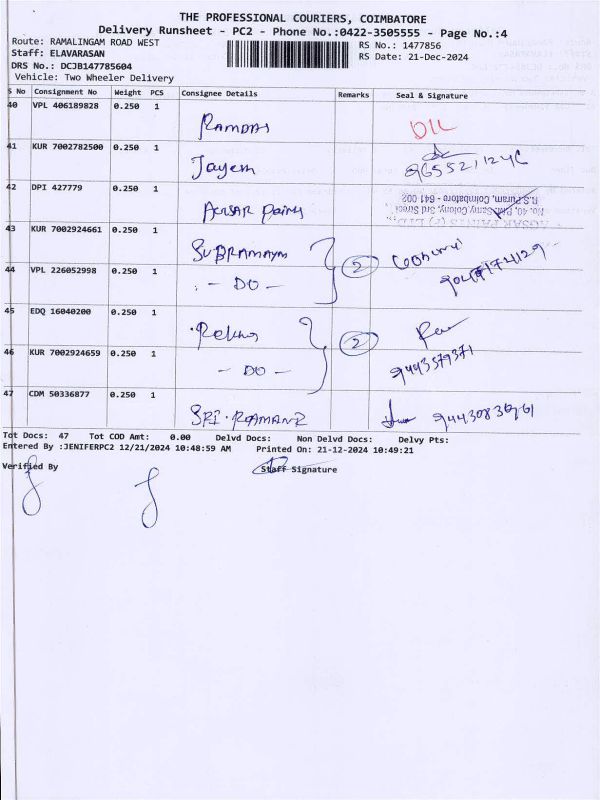 THE PROFESSIONAL COURIERS, COIMBATORE
Delivery Runsheet - PC2 - Phone No.:0422-3505555 - Page No.:4
Route: RAMALINGAM ROAD WEST
Staff: ELAVARASAN
DRS No.: DCJB147785604
Vehicle: Two Wheeler Delivery
RS No.: 1477856
RS Date: 21-Dec-2024
S No Consignment No Weight PCS Consignee Details Remarks Seal & Signature
40 VPL 406189828 0.250 1 Ramdas
41 KUR 7002782500 0.250 1 Jayem
42 DPI 427779 0.250 1 No. 40, Colony, 3rd Street
R.S.Puram, Coimbatore - 641 002
43 KUR 7002924661 0.250 1 SUBRAMAYM 2
44 VPL 226052998 0.250 1 - DO -
45 EDQ 16040200 0.250 1 Rekha 2
46 KUR 7002924659 0.250 1 - DO - 9443579371
47 CDM 50336877 0.250 1 SRI.
Tot Docs: 47 Tot COD Amt: 0.00 Delvd Docs: Non Delvd Docs: Delvy Pts:
Entered By :JENIFERPC2 12/21/2024 10:48:59 AM Printed On: 21-12-2024 10:49:21
Verified By Staff Signature